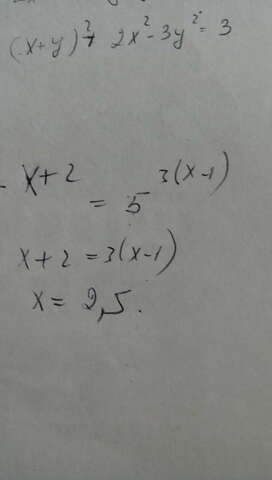 (x+y)²+ 2x²-3y²=3
- x+2 = 5 3(x-1)
x+2 = 3(x-1)
x = 2,5.